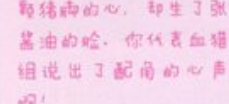 颗猪脚的心，却生了张
酱油的脸。你代表血猫
组说出了配角的心声
啊！